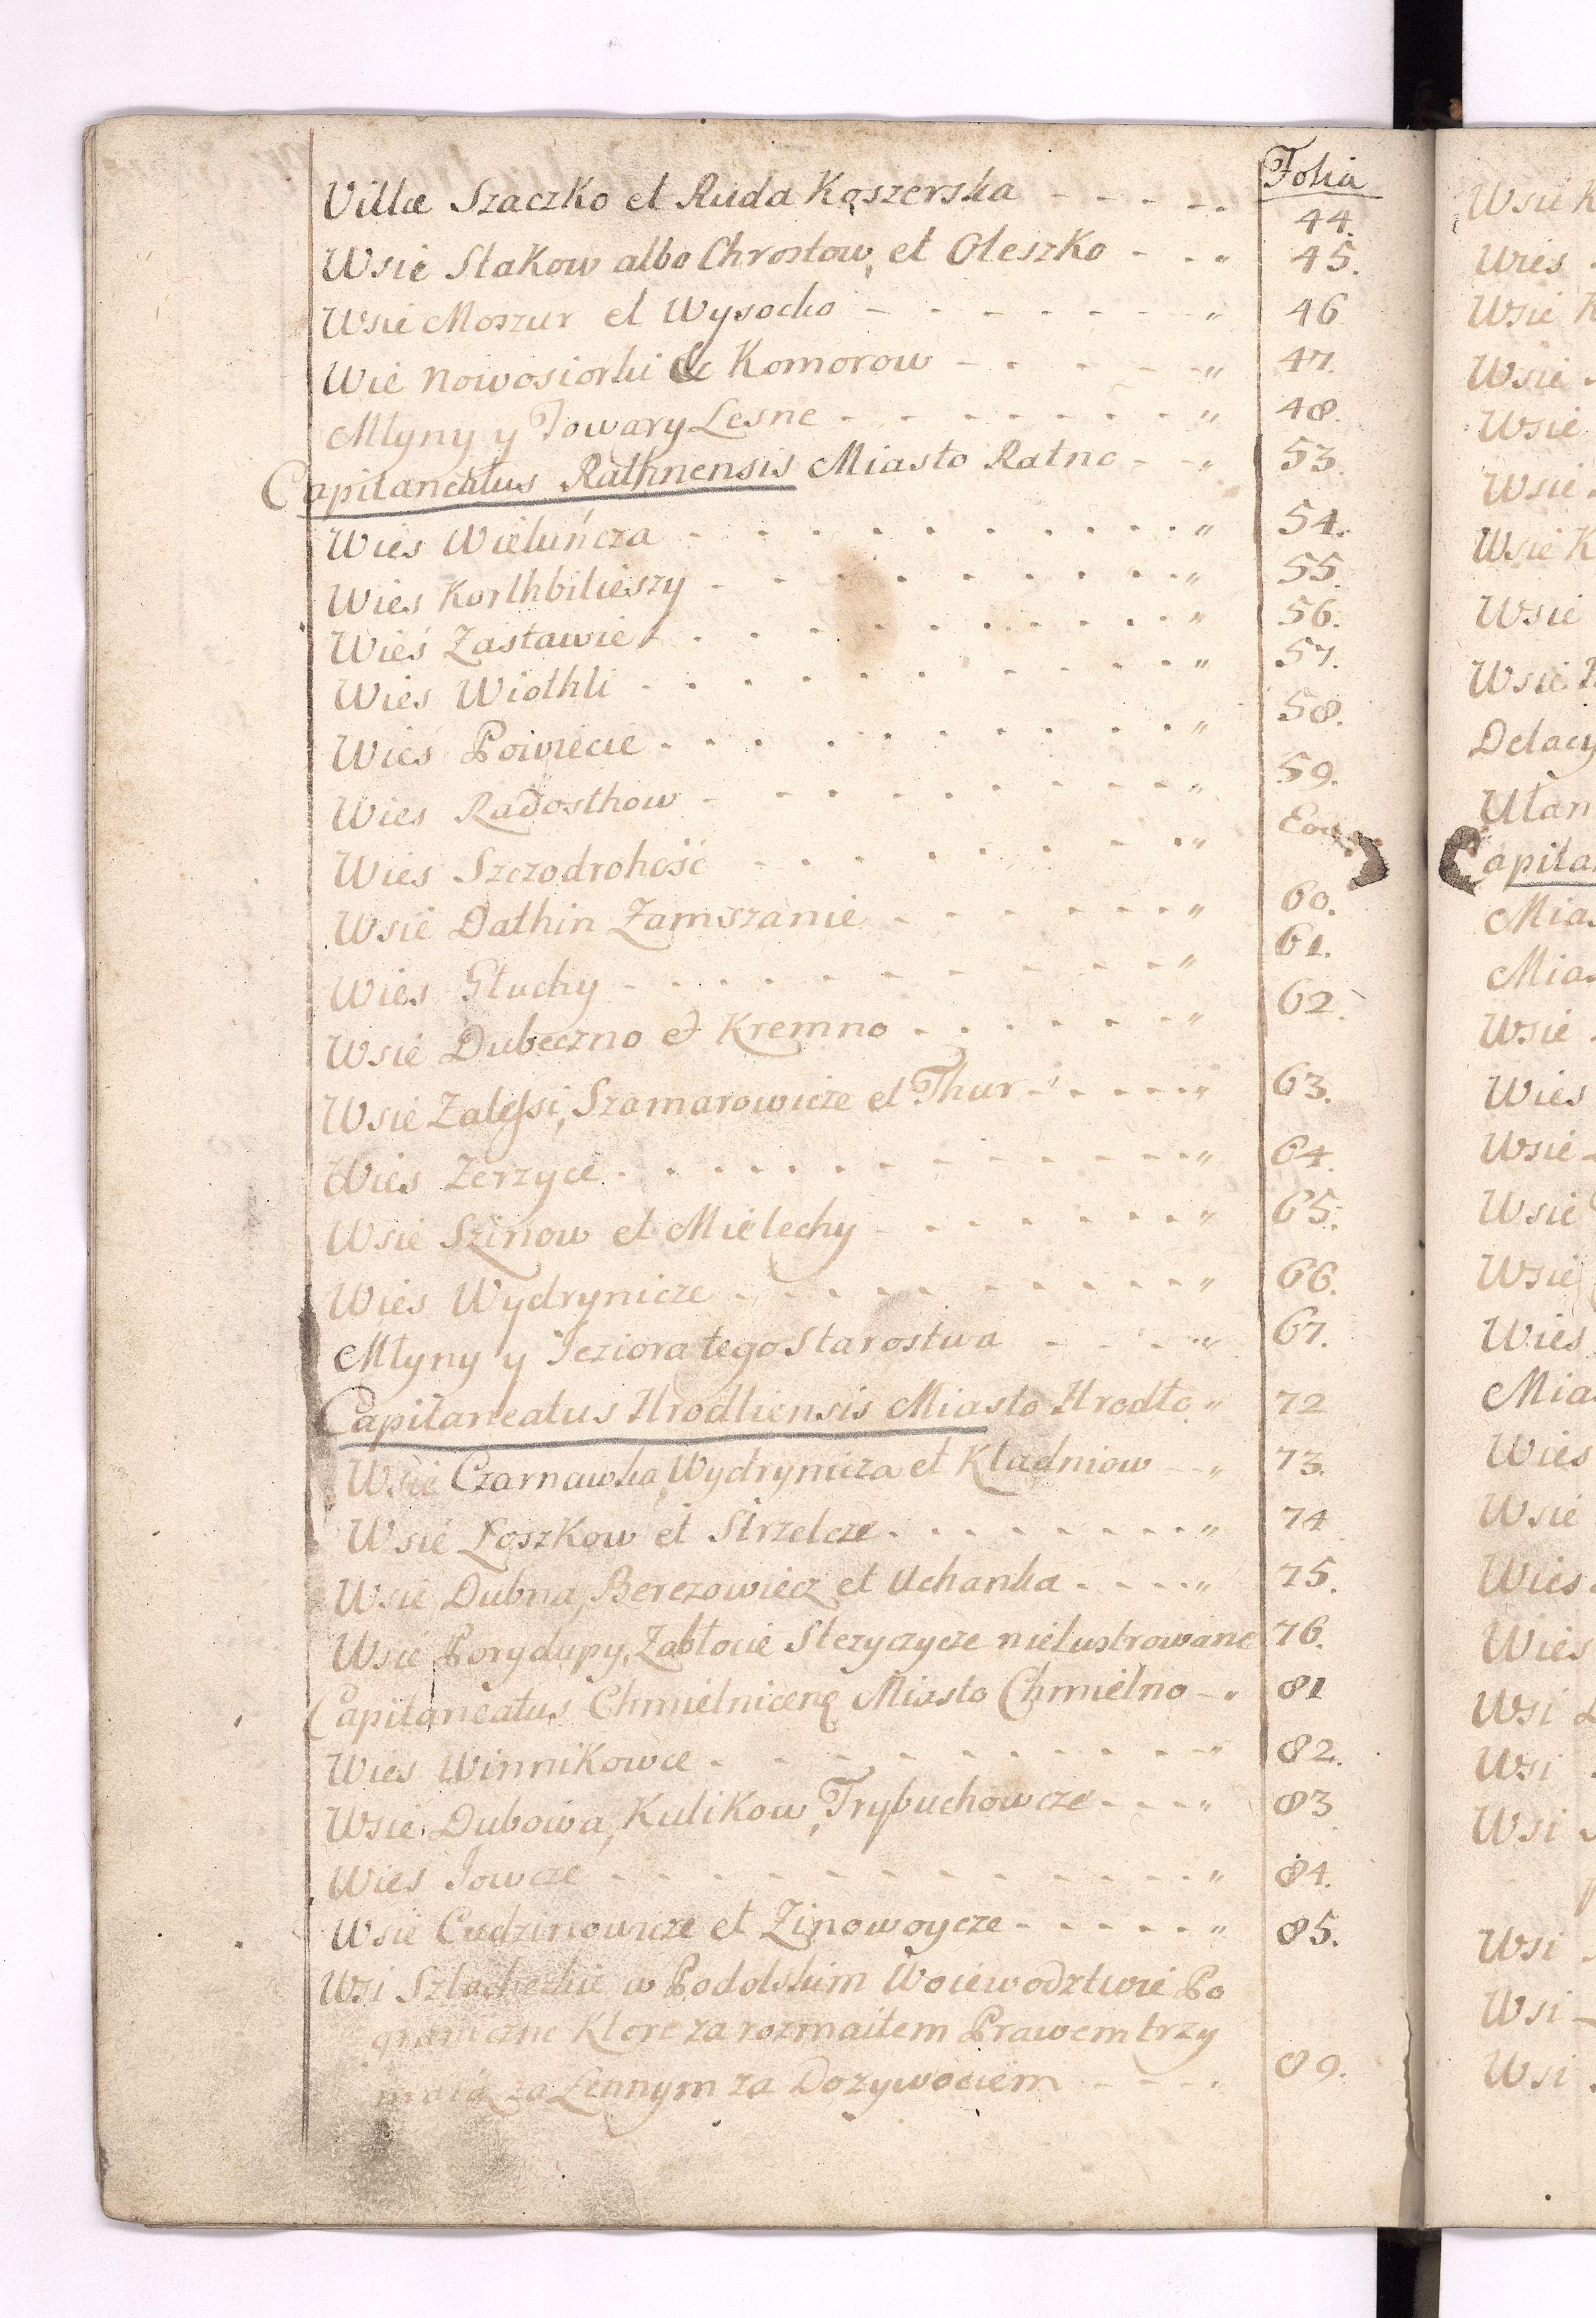 Folia
Villæ Szaczko et Ruda Koszerska - - - - - 44.
Wsie Stakow albo Chrostow, et Oleszko - - „ 45.
Wsie Moszur et Wysocko - - - - - - - „ 46
Wie Nowosiorki & Komorow - - - - - „ 47.
Młyny y Towary Lesne - - - - - - - „ 48.
Capitaneatus Rathnensis Miasto Ratno - - „ 53.
Wies Wieluńcza - - - - - - - - - „ 54.
Wies Korthbilieszy - - - - - - - - - „ 55.
Wieś Zastawie - - - - - - - - - - „ 56.
Wies Wiothli - - - - - - - - - - „ 57.
Wieś Powiecie - - - - - - - - - - „ 58.
Wies Radosthow - - - - - - - - - „ 59.
Wies Szczodrohość - - - - - - - - „
Wsie Dathin Zamszanie - - - - - - „ 60.
Wies Głuchy - - - - - - - - - - „ 61.
Wsie Dubeczno et Kremno - - - - - - „ 62.
Wsie Zalessi, Szamarowicze et Thur - - - - - „ 63.
Wies Zerzyce - - - - - - - - - - - „ 64.
Wsie Szinow et Mielechy - - - - - - - „ 65.
Wies Wydrynicze - - - - - - - - - „ 66.
Młyny y Jeziora tego Starostwa - - - - „ 67.
Capitaneatus Hrodliensis Miasto Hrodło „ 72
Wsie Czarnawka, Wydrynicza et Kładniow - „ 73.
Wsie Loszkow et Strzelcze - - - - - - - „ 74
Wsie Dubna, Berezowiecz et Uchanka - - - - „ 75.
Wsie Porydupy, Zabłocie Stezyczycze nielustrowane 76.
Capitaneatus Chmielnicens Miasto Chmielno - „ 81
Wies Winnikowce - - - - - - - - - „ 82.
Wsie Dubowa, Kulikow, Trybuchowcze - - - „ 83
Wies Jowcze - - - - - - - - - - - „ 84.
Wsie Cudzinowicze et Zinowoycze - - - - - „ 85.
Wsi Szlacheckie w Podolskim Woiewodztwie Po
graniczne Ktore za rozmaitem Prawem trzy
maią za Lennym za Dozywociem - - - - 89.
Wsie
Wies
Wsie
Wsie
Wsie
Wsie
Wsie K
Wsie
Wsie
Mia
Mia
Wsie
Wies
Wsie
Wsie
Wsie
Wies
Mia
Wies
Wsie
Wies
Wies
Wsi
Wsi
Wsi
Wsi
Wsi
Wsi